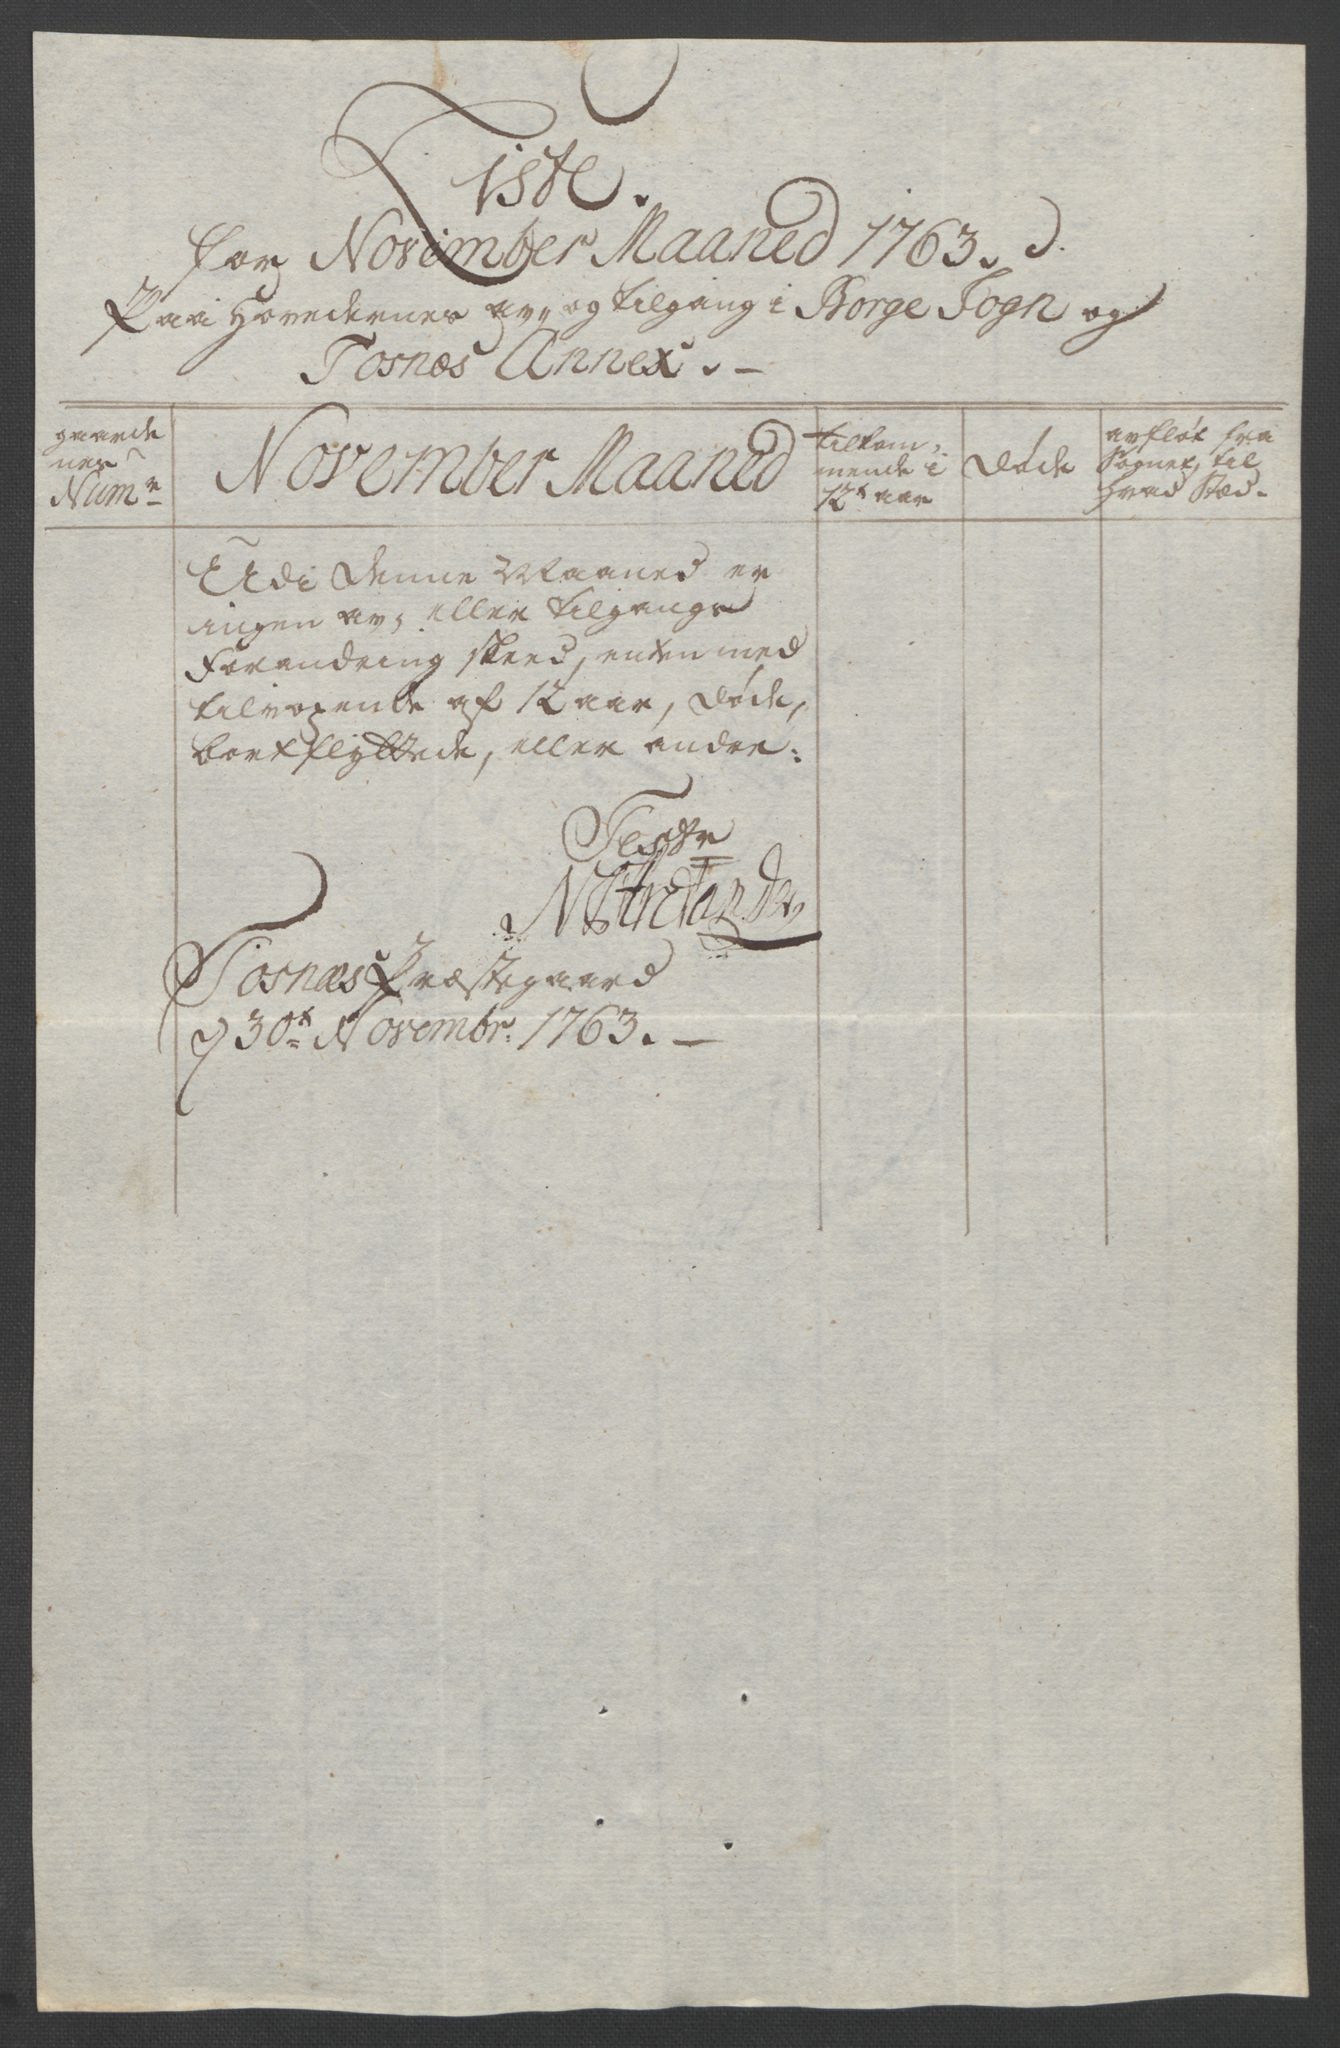 Liste.
for November Maaned 1763.
Paa Hovedernes av, og tilgang i Borge Sogn og
Tosnæs Annex. –
gaarde
nes
Numr
November Maaned
tilkom,
mende i
12t aar
Døde
avfløt fra
Sognet, til
hvad Sted.
Udi denne Maaned er
ingen av, eller tilgangs
Forandring skeed, enten med
tilvoxende af 12 aar, døde,
bortflyttede, eller andre.
Testor
Tosnæs Præstegaard
d 30t Novembr. 1763. –